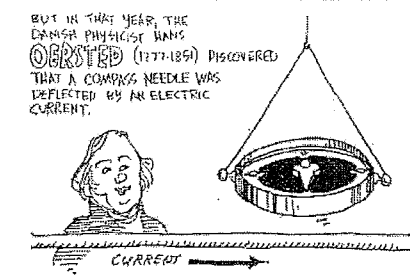 BUT IN THAT YEAR, THE
DANISH PHYSICIST HANS
OERSTED (1777-1851) DISCOVERED
THAT A COMPASS NEEDLE WAS
DEFLECTED BY AN ELECTRIC
CURRENT.
CURRENT